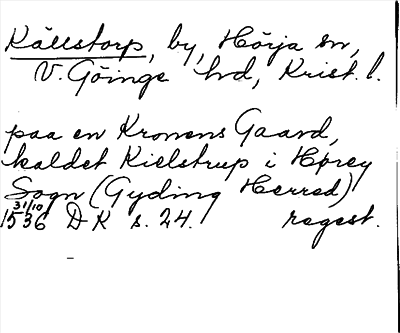 Källstorp, by, Hörja sn,
V. Göinge hd, Krist. l.
paa en Kronens Gaard,
kaldet Kielstrup i Hørey
Sogn (Gyding Herred)
31/10
1536 DK s. 24. regest.